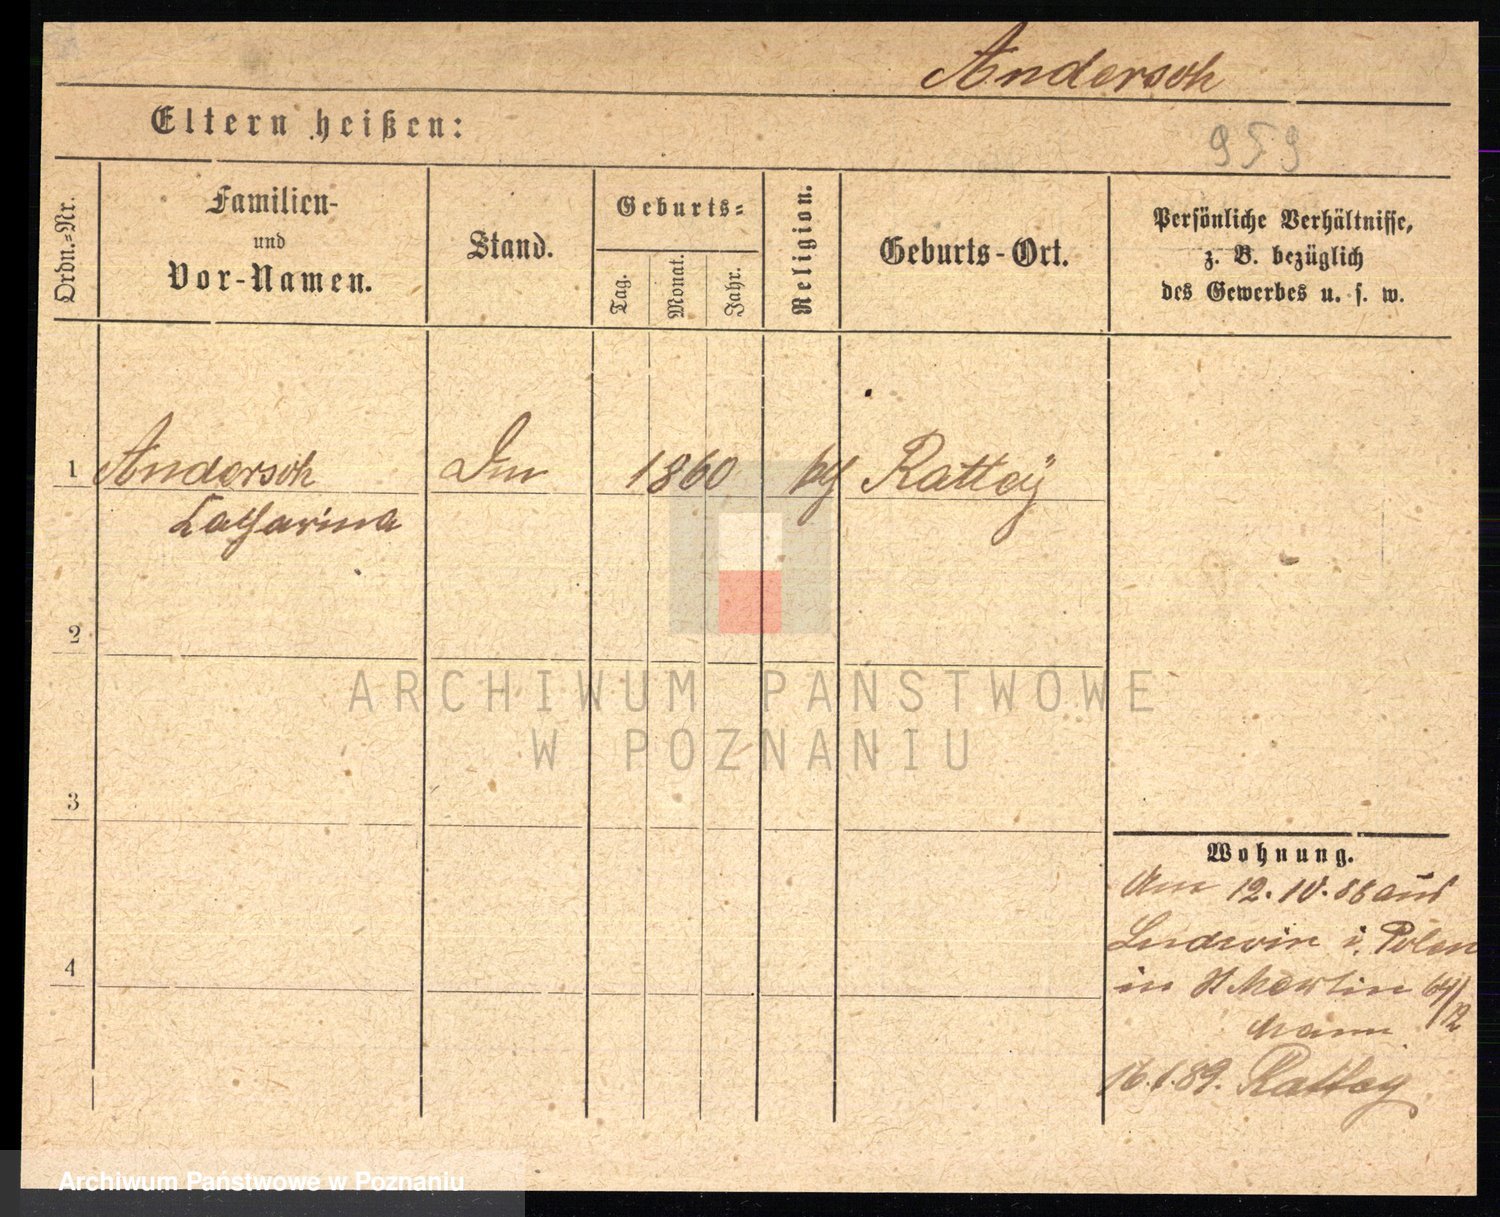 Andersch
Eltern heißen:
959
Ordn.=Nr.
Familien-
und
Vor-Namen.
Stand.
Geburts=
Tag.
Monat.
Jahr.
Religion.
Geburts-Ort.
Persönliche Verhältnisse,
z. B. bezüglich
des Gewerbes u. s. w.
1 Andersch 1860 Rattaÿ
Catharina
2
ARCHIWUM PAŃSTWOWE
W POZNANIU
3
Wohnung.
Am 12. 10. 86 aus
i. Polen
4
in St Martin 64/12
16.1.89. Rattay
Archiwum Państwowe w Poznaniu